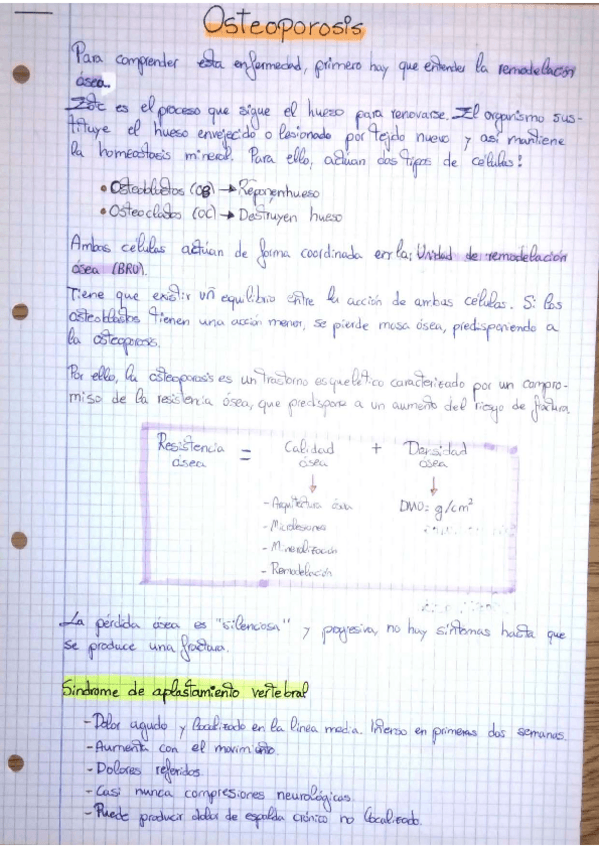 Osteoporosis
Para comprender esta enfermedad, primero hay que entender la remodelación
ósea.
Este es el proceso que sigue el hueso para renovarse. El organismo sus-
tituye el hueso envejecido o lesionado por tejido nuevo y así mantiene
la homeostasis mineral. Para ello, actúan dos tipos de células:
• Osteoblastos (OB) → Reponen hueso
• Osteoclastos (OC) → Destruyen hueso
Ambas células actúan de forma coordinada en la: Unidad de remodelación
ósea (BRU).
Tiene que existir un equilibrio entre la acción de ambas células. Si los
osteoblastos tienen una acción menor, se pierde masa ósea, predisponiendo a
la osteoporosis.
Por ello, la osteoporosis es un trastorno esquelético caracterizado por un compro-
miso de la resistencia ósea, que predispone a un aumento del riesgo de fractura
Resistencia = Calidad + Densidad
ósea ósea ósea
↓ ↓
- Arquitectura ósea DMO: g/cm²
- Microlesiones
- Mineralización
- Remodelación
La pérdida ósea es "silenciosa" y progresiva, no hay síntomas hasta que
se produce una fractura.
Síndrome de aplastamiento vertebral
- Dolor agudo y localizado en la línea media. Intenso en primeras dos semanas.
- Aumenta con el movimiento.
- Dolores referidos.
- Casi nunca compresiones neurológicas.
- Puede producir dolor de espalda crónico no localizado.